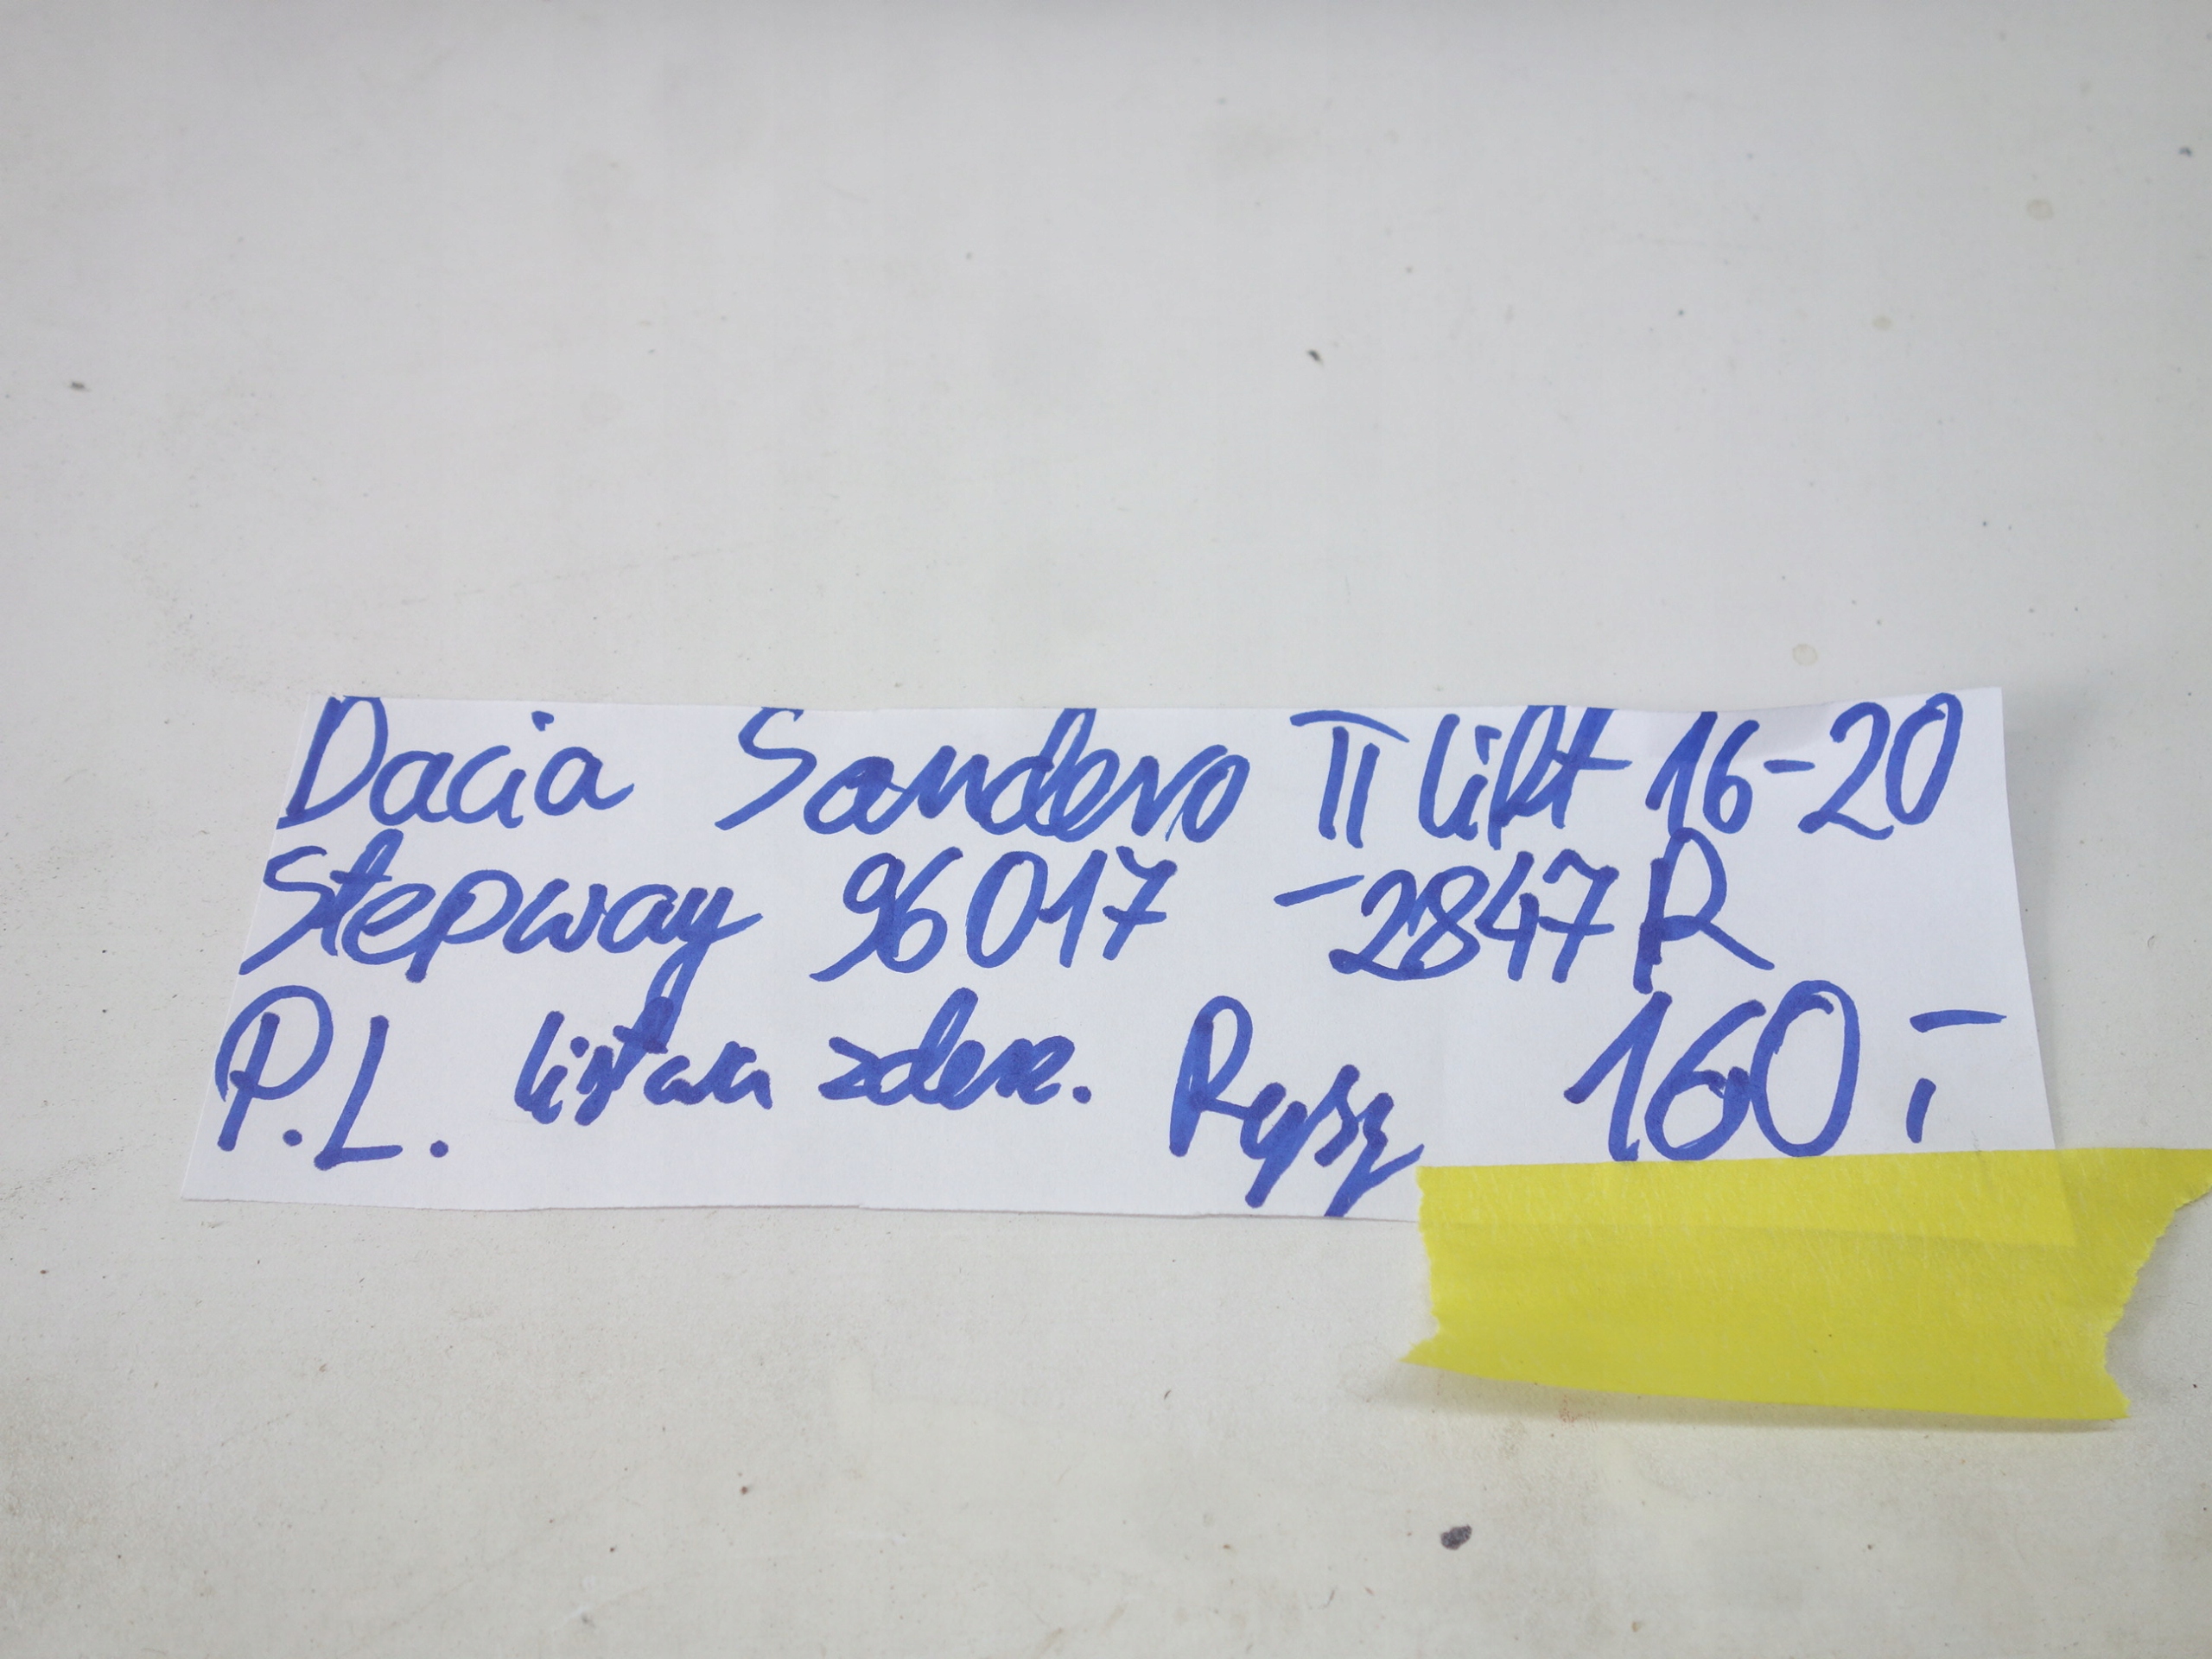 Dacia Sandero II lift 16-20
Stepway 96017 -2847R
P.L. listwa zderz. Rysy 160,-